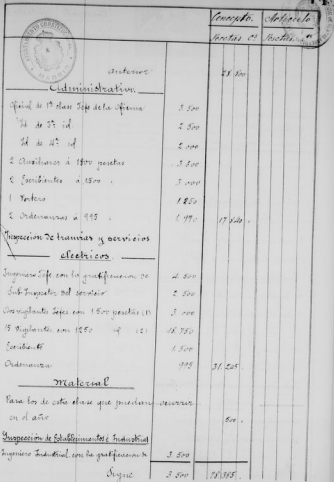 Concepto. Artículo
Pesetas Cs Pesetas Cs
anterior 28.800
Administrativo
Oficial de 1ª clase Jefe de la Oficina 3.500
Id de 3ª id. 2.500
Id de 4ª id. 2.000
2 Auxiliares á 1800 pesetas 3.600
2 Escribientes á 1500 " 3.000
1 Portero 1.250
2 Ordenanzas á 995 " 1.990 17.840
Inspección de tranvías y servicios
electricos.
Ingeniero Jefe con la gratificacion de 4.500
Sub-Inspector del servicio 2.500
Dos vigilantes Jefes con 1.500 pesetas (1) 3.000
15 Vigilantes con 1250 id (2) 18.750
Escribiente 1.500
Ordenanza 995 31.245
Material
Para los de esta clase que puedan ocurrir
en el año 500
Inspección de Establecimientos é Industrias
Ingeniero Industrial con la gratificacion de 3.500
Sigue 3.500 78.385